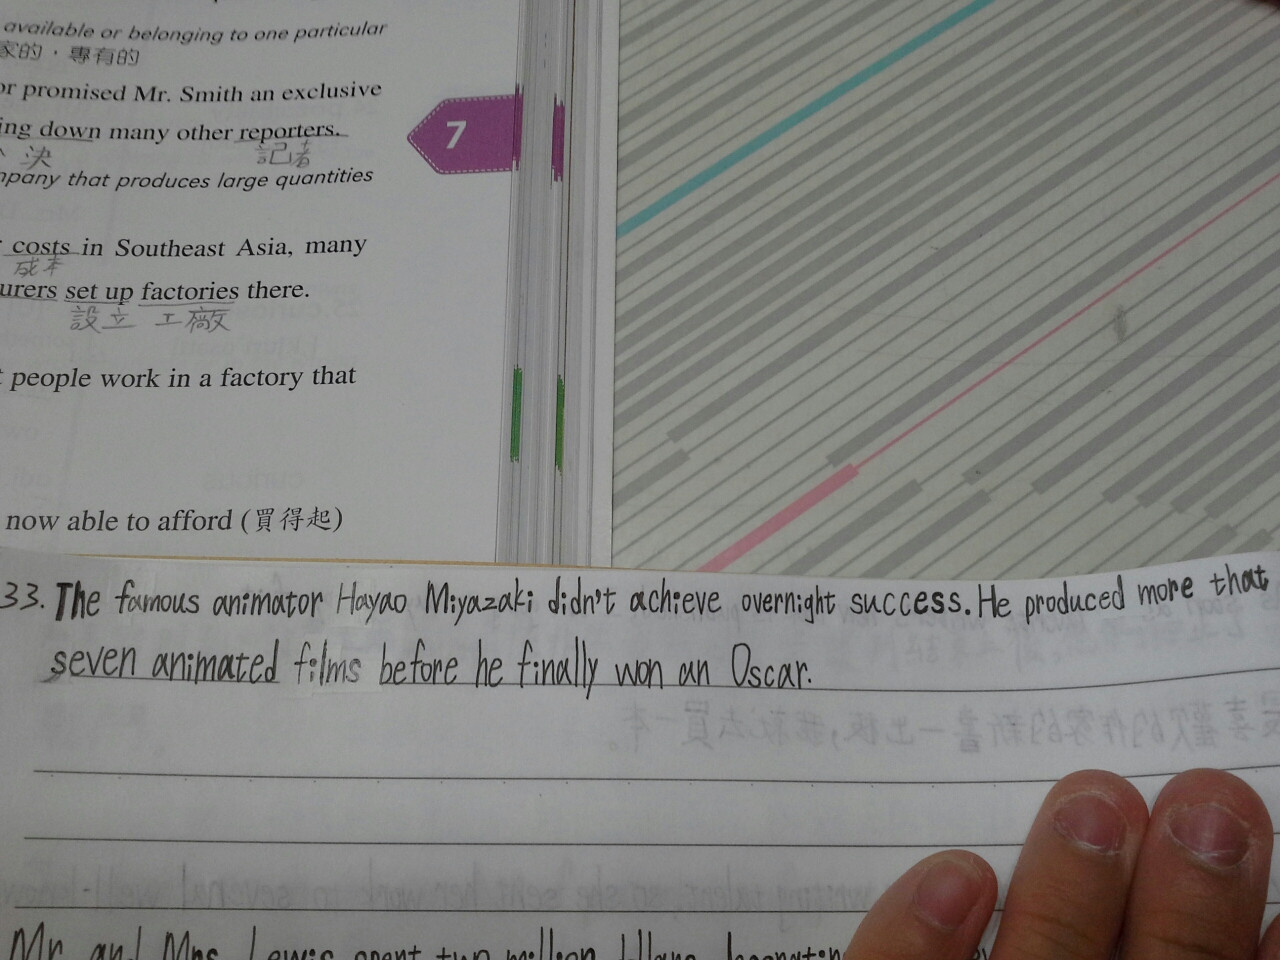 available or belonging to one particular
家的，專有的
or promised Mr. Smith an exclusive
ing down many other reporters.
決 記者
mpany that produces large quantities
costs in Southeast Asia, many
成本
urers set up factories there.
設立 工廠
people work in a factory that
now able to afford (買得起)
7
33. The famous animator Hayao Miyazaki didn't achieve overnight success. He produced more that
seven animated films before he finally won an Oscar.
Mr. and Mrs. Lewis spent two million